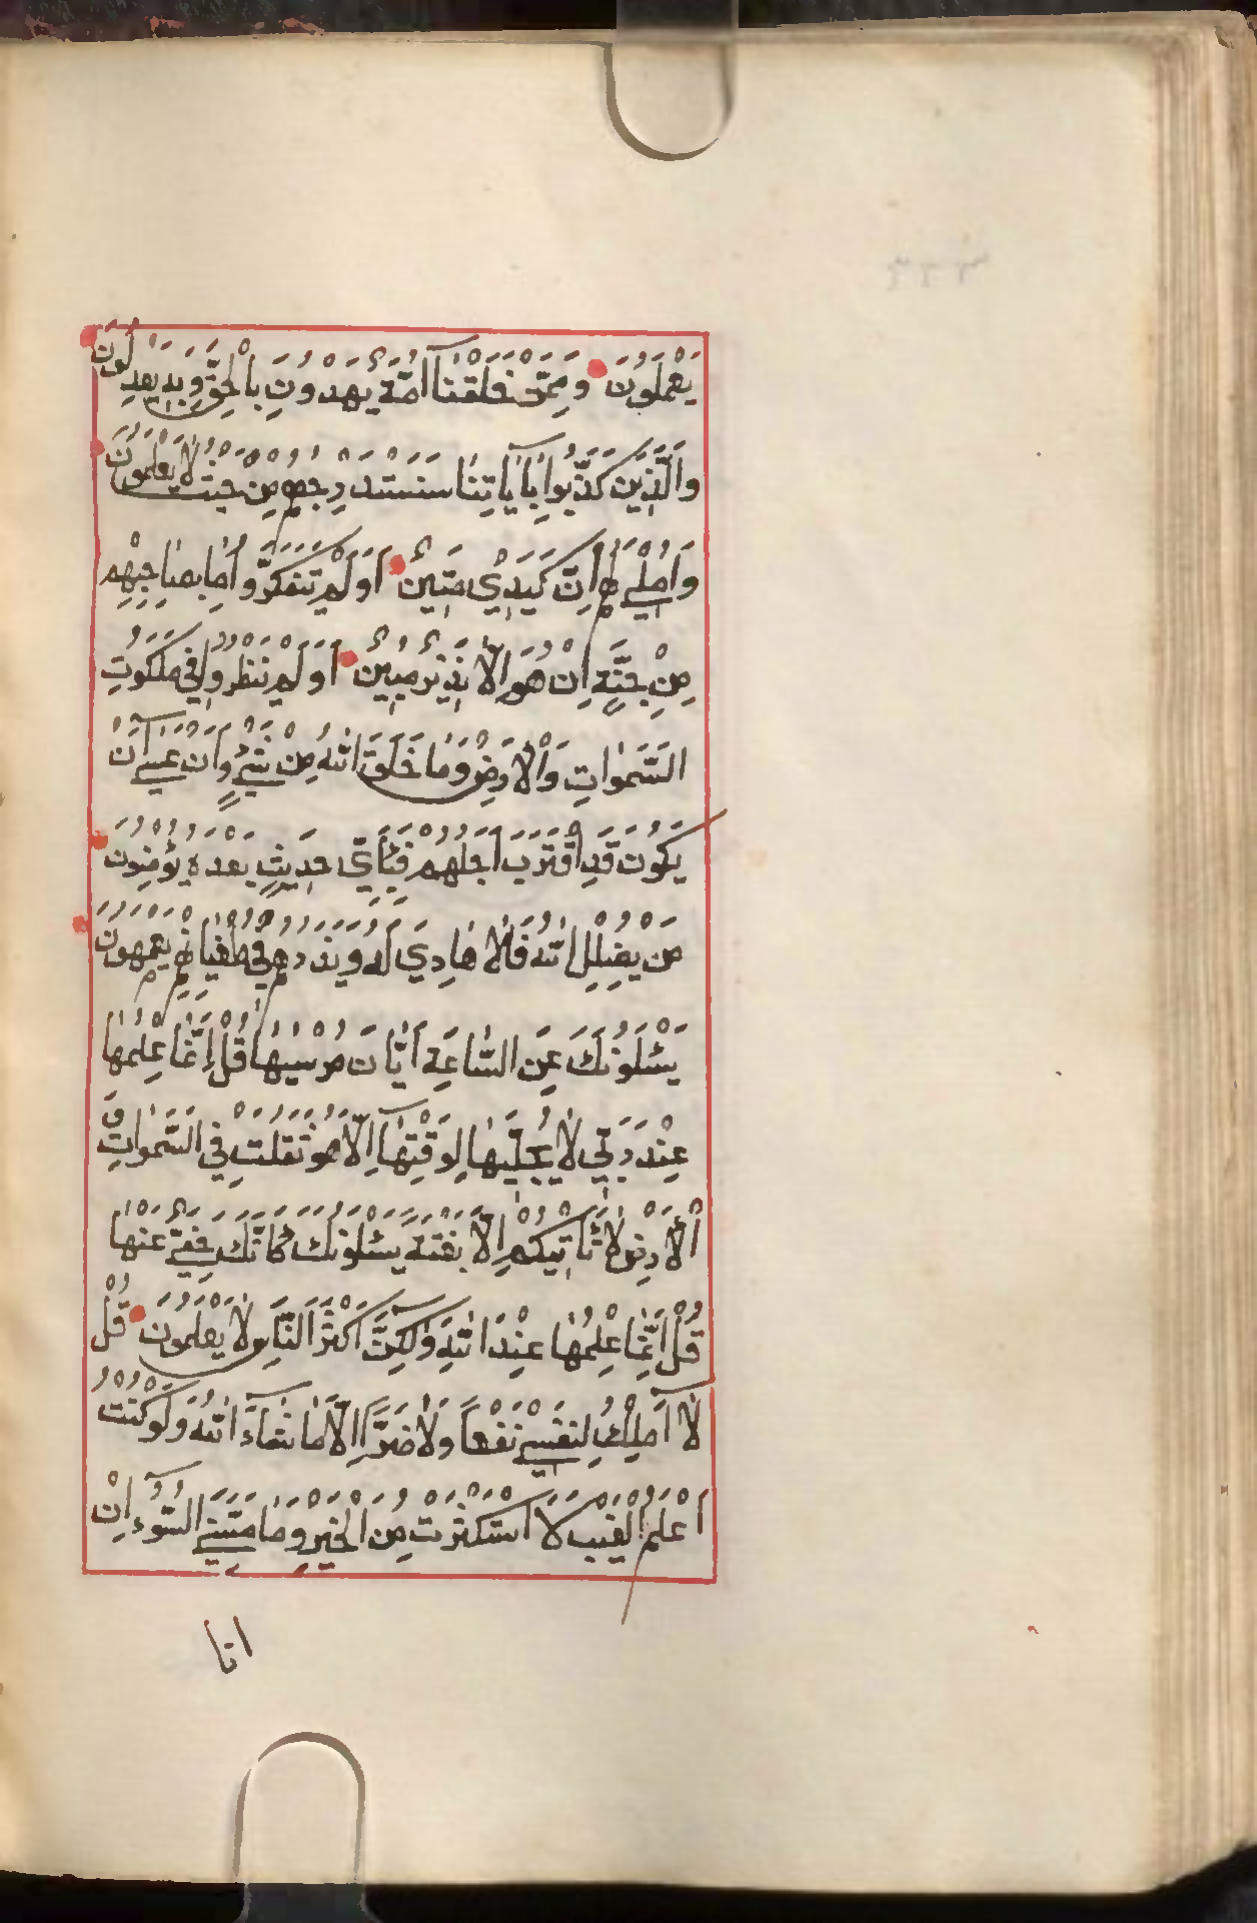 يَعْمَلُونَ وَمِمَّنْ خَلَقْنَا أُمَّةٌ يَهْدُونَ بِالْحَقِّ وَبِهِ يَعْدِلُونَ
وَالَّذِينَ كَذَّبُوا بِاٰيَاتِنَا سَنَسْتَدْرِجُهُمْ مِنْ حَيْثُ لَا يَعْلَمُونَ
وَاُمْلِي لَهُمْ اِنَّ كَيْدِي مَتِينٌ اَوَلَمْ يَتَفَكَّرُوا مَا بِصَاحِبِهِمْ
مِنْ جِنَّةٍ اِنْ هُوَ اِلَّا نَذِيرٌ مُبِينٌ اَوَلَمْ يَنْظُرُوا فِي مَلَكُوتِ
السَّمٰوَاتِ وَالْاَرْضِ وَمَا خَلَقَ اللّٰهُ مِنْ شَيْءٍ وَاَنْ عَسٰى اَنْ
يَكُونَ قَدِ اقْتَرَبَ اَجَلُهُمْ فَبِاَيِّ حَدِيثٍ بَعْدَهُ يُؤْمِنُونَ
مَنْ يُضْلِلِ اللّٰهُ فَلَا هَادِيَ لَهُ وَيَذَرُهُمْ فِي طُغْيَانِهِمْ يَعْمَهُونَ
يَسْئَلُونَكَ عَنِ السَّاعَةِ اَيَّانَ مُرْسٰيهَا قُلْ اِنَّمَا عِلْمُهَا
عِنْدَ رَبِّي لَا يُجَلِّيهَا لِوَقْتِهَا اِلَّا هُوَ ثَقُلَتْ فِي السَّمٰوَاتِ وَ
الْاَرْضِ لَا تَاْتِيكُمْ اِلَّا بَغْتَةً يَسْئَلُونَكَ كَاَنَّكَ حَفِيٌّ عَنْهَا
قُلْ اِنَّمَا عِلْمُهَا عِنْدَ اللّٰهِ وَلٰكِنَّ اَكْثَرَ النَّاسِ لَا يَعْلَمُونَ قُلْ
لَا اَمْلِكُ لِنَفْسِي نَفْعًا وَلَا ضَرًّا اِلَّا مَا شَاءَ اللّٰهُ وَلَوْ كُنْتُ
اَعْلَمُ الْغَيْبَ لَا اسْتَكْثَرْتُ مِنَ الْخَيْرِ وَمَا مَسَّنِيَ السُّوءُ اِنْ
انا